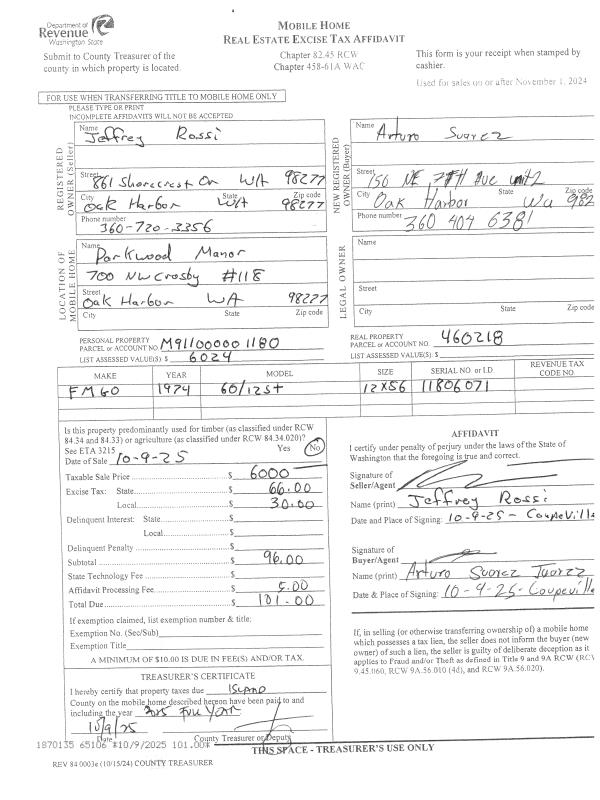 Department of
Revenue
Washington State
MOBILE HOME
REAL ESTATE EXCISE TAX AFFIDAVIT
Submit to County Treasurer of the
county in which property is located.
Chapter 82.45 RCW
Chapter 458-61A WAC
This form is your receipt when stamped by
cashier.
Used for sales on or after November 1, 2024
FOR USE WHEN TRANSFERRING TITLE TO MOBILE HOME ONLY
PLEASE TYPE OR PRINT
INCOMPLETE AFFIDAVITS WILL NOT BE ACCEPTED
REGISTERED
OWNER (Seller)
Name Jeffrey Rossi
Street 861 Shorecrest Dr WA 98277
City Oak Harbor State WA Zip code 98277
Phone number 360-720-3356
NEW REGISTERED
OWNER (Buyer)
Name Arturo Suarez
Street 156 NE 7TH Ave unit 2
City Oak Harbor State Wa Zip code 982
Phone number 360 404 6381
LOCATION OF
MOBILE HOME
Name Parkwood Manor
700 NW Crosby #118
Street Oak Harbor WA 98277
City State Zip code
LEGAL OWNER
Name
Street
City State Zip code
PERSONAL PROPERTY
PARCEL or ACCOUNT NO. M91100000 1180
LIST ASSESSED VALUE(S) $ 6024
REAL PROPERTY
PARCEL or ACCOUNT NO. 460218
LIST ASSESSED VALUE(S) $
MAKE YEAR MODEL SIZE SERIAL NO. or I.D. REVENUE TAX CODE NO.
FMGO 1974 60/12S+ 12x56 11806071
Is this property predominantly used for timber (as classified under RCW
84.34 and 84.33) or agriculture (as classified under RCW 84.34.020)?
See ETA 3215 Yes No
Date of Sale 10-9-25
Taxable Sale Price $ 6000
Excise Tax: State $ 66.00
Local $ 30.00
Delinquent Interest: State $
Local $
Delinquent Penalty $
Subtotal $ 96.00
State Technology Fee $
Affidavit Processing Fee $ 5.00
Total Due $ 101.00
If exemption claimed, list exemption number & title:
Exemption No. (Sec/Sub)
Exemption Title
A MINIMUM OF $10.00 IS DUE IN FEE(S) AND/OR TAX.
AFFIDAVIT
I certify under penalty of perjury under the laws of the State of
Washington that the foregoing is true and correct.
Signature of
Seller/Agent
Name (print) Jeffrey Rossi
Date and Place of Signing: 10-9-25 - Coupeville
Signature of
Buyer/Agent
Name (print) Arturo Suarez Juarez
Date & Place of Signing: 10-9-25-Coupeville
If, in selling (or otherwise transferring ownership of) a mobile home
which possesses a tax lien, the seller does not inform the buyer (new
owner) of such a lien, the seller is guilty of deliberate deception as it
applies to Fraud and/or Theft as defined in Title 9 and 9A RCW (RCW
9.45.060, RCW 9A.56.010 (4d), and RCW 9A.56.020).
TREASURER'S CERTIFICATE
I hereby certify that property taxes due ISLAND
County on the mobile home described hereon have been paid to and
including the year 2025 FULL YEAR.
10/9/25
Date County Treasurer or Deputy
1870135 65106 *10/9/2025 101.00*
THIS SPACE - TREASURER'S USE ONLY
REV 84 0003e (10/15/24) COUNTY TREASURER